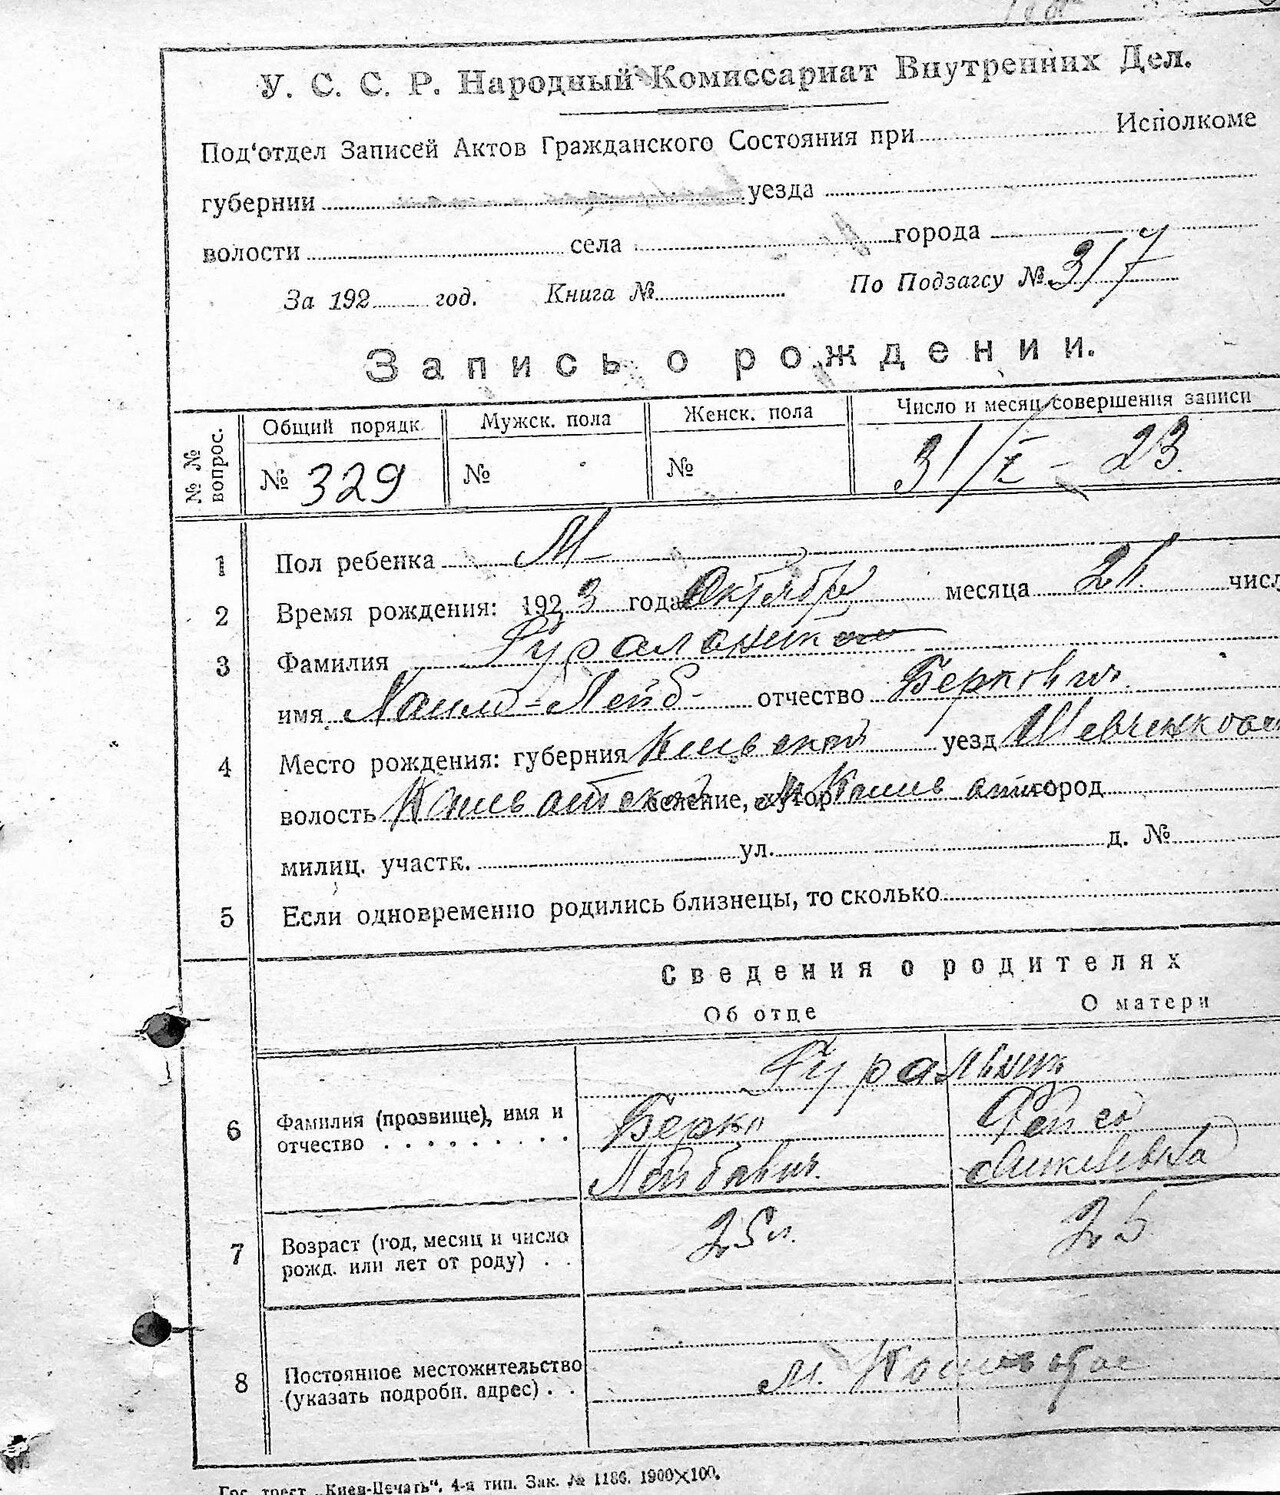 У. С. С. Р. Народный Комиссариат Внутренних Дел.
Под'отдел Записей Актов Гражданского Состояния при Исполкоме
губернии уезда
волости села города
За 192 год. Книга № По Подзагсу № 317
Запись о рождении.
№ № вопрос. Общий порядк. Мужск. пола Женск. пола Число и месяц совершения записи
№ 329 № № 31/X - 23
1 Пол ребенка М
2 Время рождения: 1923 года Октября месяца 21 числ
3 Фамилия
имя Хаим-Лейб отчество Беркович
4 Место рождения: губерния Киевской уезд Шевченковск
волость селение, хутор м. город
милиц. участк. ул. д. №
5 Если одновременно родились близнецы, то сколько
Сведения о родителях
Об отце О матери
6 Фамилия (прозвище), имя и отчество
Гуральник
Берко Фейга
Лейбович
7 Возраст (год, месяц и число рожд. или лет от роду) 25 л. 25
8 Постоянное местожительство (указать подробн. адрес) м.
Гос. трест „Киев-Печать“, 4-я тип. Зак. № 1186. 1900×100.